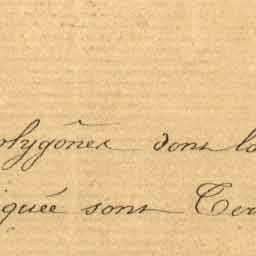 olygônes dont la
iquée sont Ter